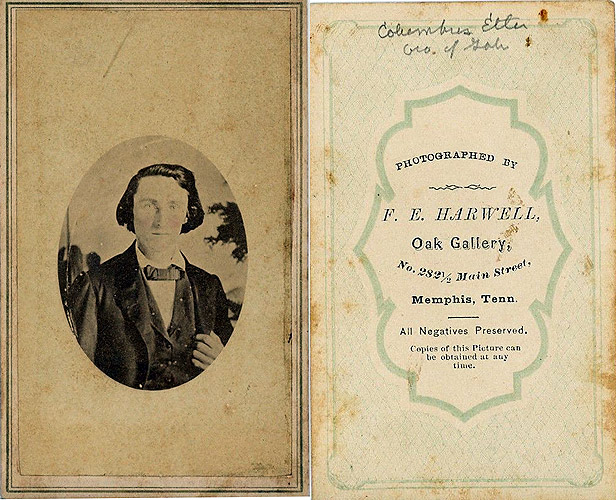 Columbus Etter
Bro. of Gab
PHOTOGRAPHED BY
F. E. HARWELL,
Oak Gallery,
No. 282½ Main Street,
Memphis, Tenn.
All Negatives Preserved.
Copies of this Picture can
be obtained at any
time.